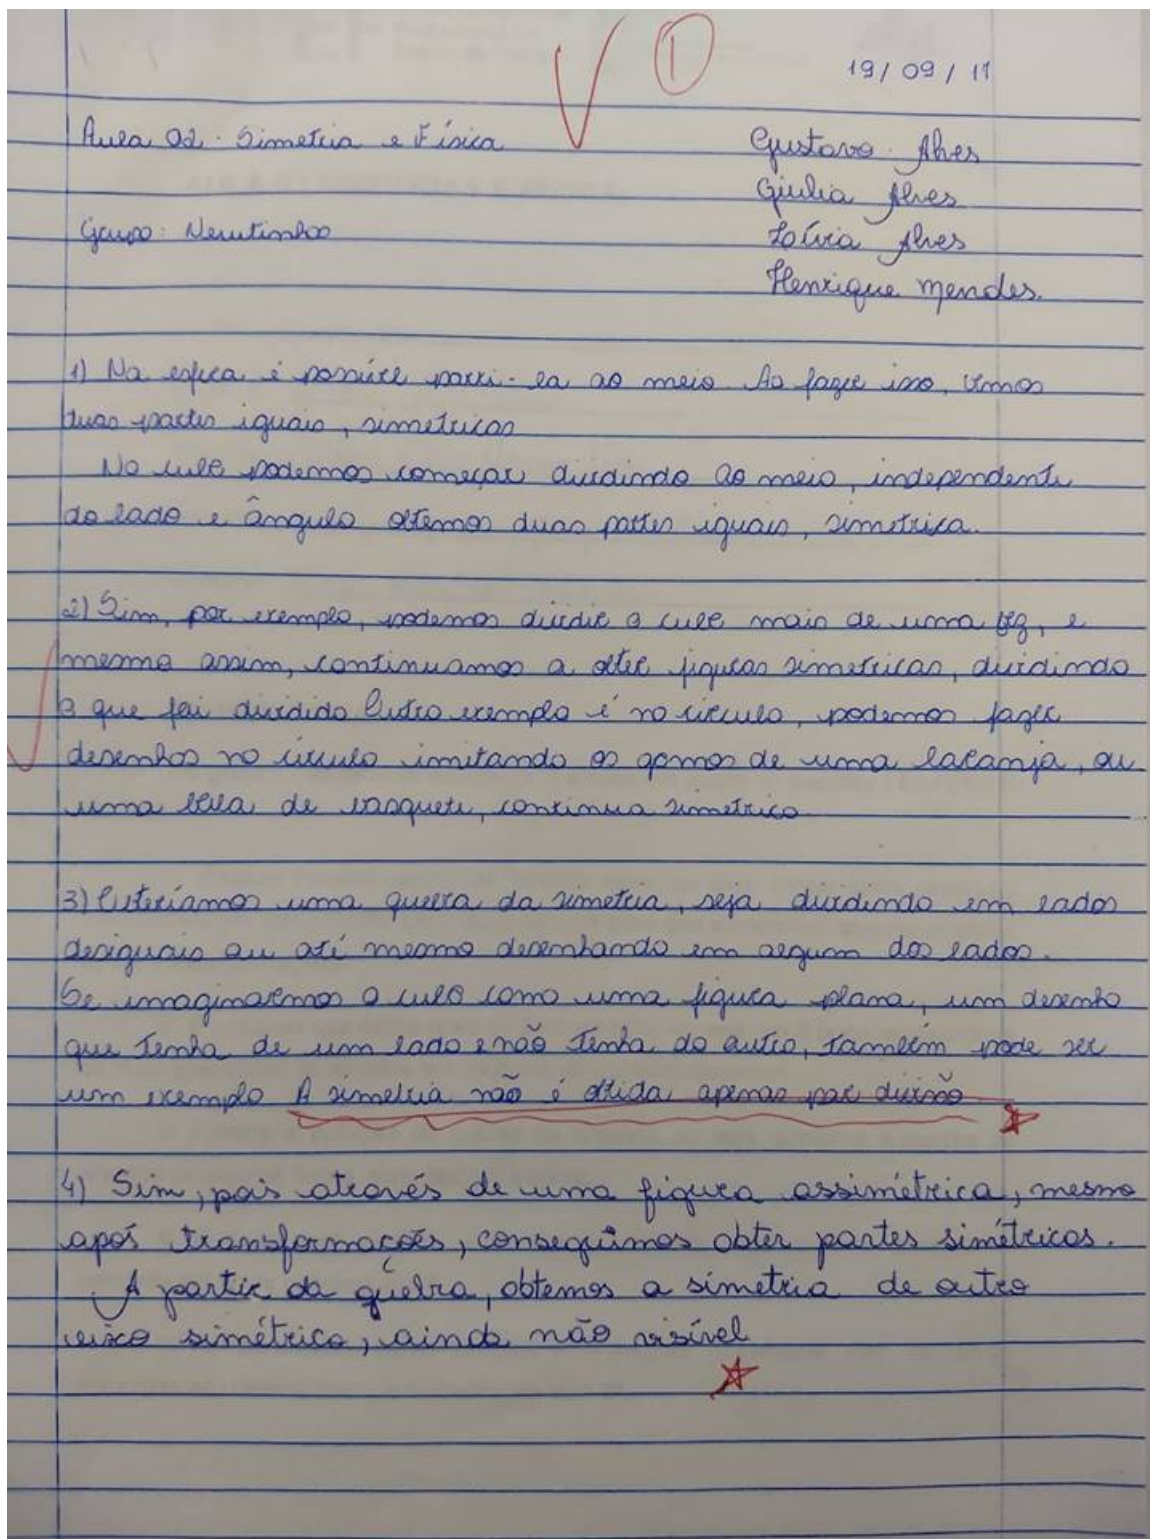 1
19/09/19
Aula 02. Simetria e Física
Gustavo Alves
Giulia Alves
Alves
Grupo:
Henrique Mendes.
1) Na esfera é possível parti-la ao meio. Ao fazer isso, vemos
duas partes iguais, simetricas
No cubo podemos começar dividindo ao meio, independente
do lado e ângulo obtemos duas partes iguais, simetrica.
2) Sim, por exemplo, podemos dividir o cubo mais de uma vez, e
mesmo assim, continuamos a obter figuras simetricas, dividindo
o que foi dividido Outro exemplo é no circulo, podemos fazer
desenhos no circulo imitando os gomos de uma laranja, ou
uma bola de basquete, continua simetrico
3) Obteríamos uma quebra da simetria, seja dividindo em lados
desiguais ou até mesmo desenhando em algum dos lados.
Se imaginarmos o cubo como uma figura plana, um desenho
que tenha de um lado e não tenha do outro, também pode ser
um exemplo A simetria não é obtida apenas por divisão
4) Sim, pois através de uma figura assimétrica, mesmo
após transformações, conseguimos obter partes simétricas.
A partir da quebra, obtemos a simetria de outro
eixo simétrico, ainda não visível